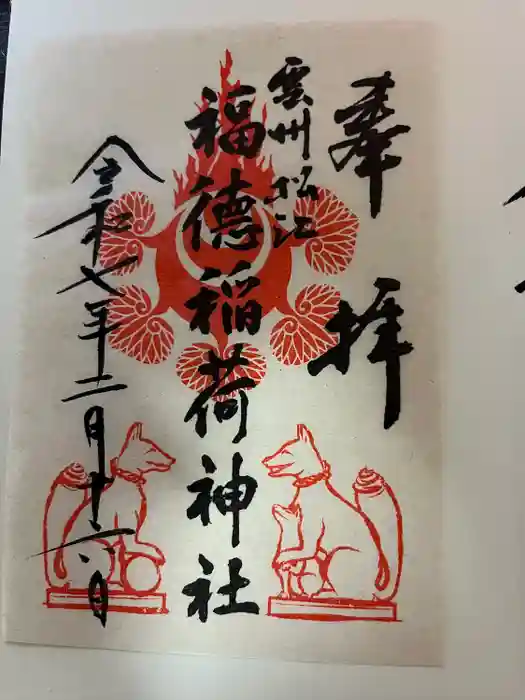 奉拝
雲州松江
福徳稲荷神社
令和七年十二月十六日